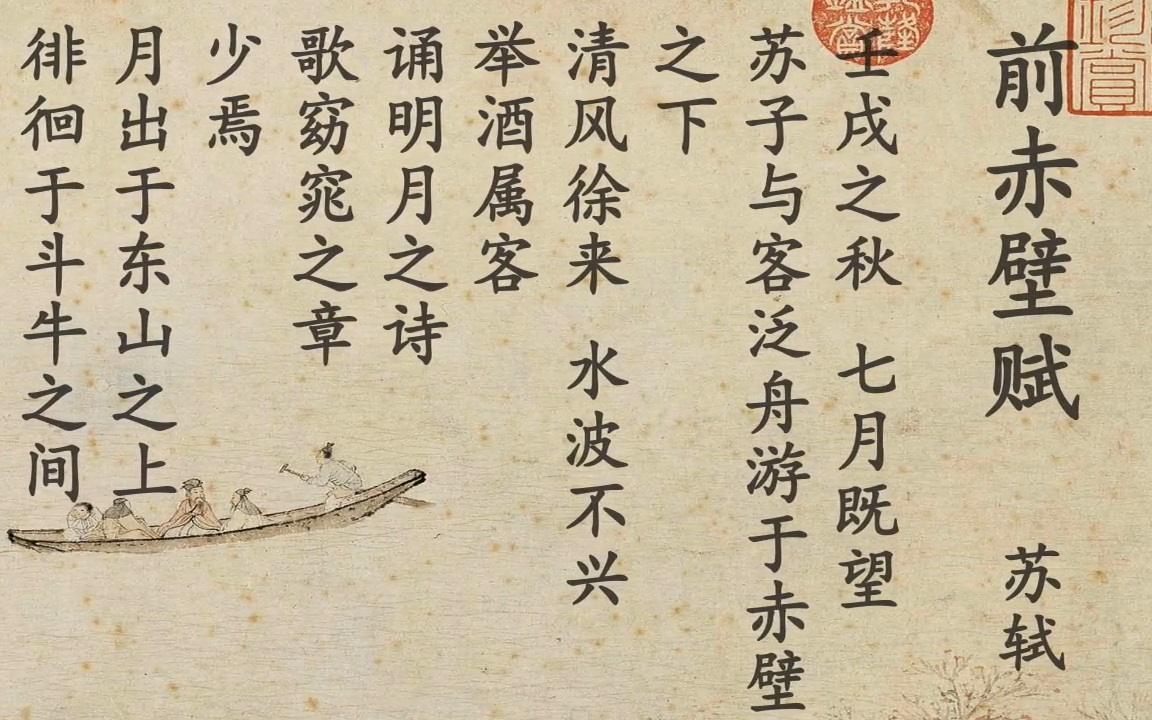 前赤壁赋 苏轼
壬戌之秋 七月既望
苏子与客泛舟游于赤壁
之下
清风徐来 水波不兴
举酒属客
诵明月之诗
歌窈窕之章
少焉
月出于东山之上
徘徊于斗牛之间